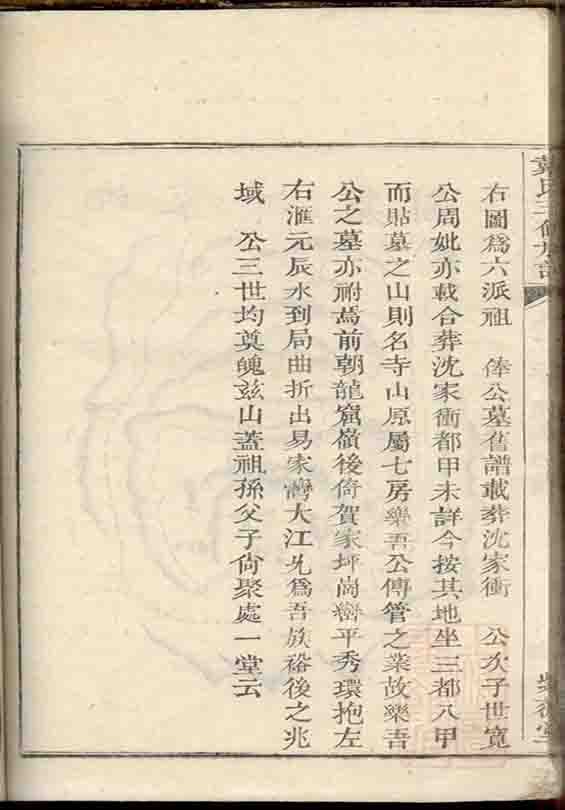 右圖爲六派祖　俸公墓舊譜載葬沈家衝　公次子世寬
公周妣亦載合葬沈家衝都甲未詳今按其地坐三都八甲
而貼墓之山則名寺山原屬七房樂吾公傳管之業故樂吾
公之墓亦祔焉前朝龍窟嶺後倚賀家坪崗巒平秀環抱左
右滙元辰水到局曲折出易家灣大江允爲吾族裕後之兆
域　公三世均奠魄兹山蓋祖孫父子尙聚處一堂云